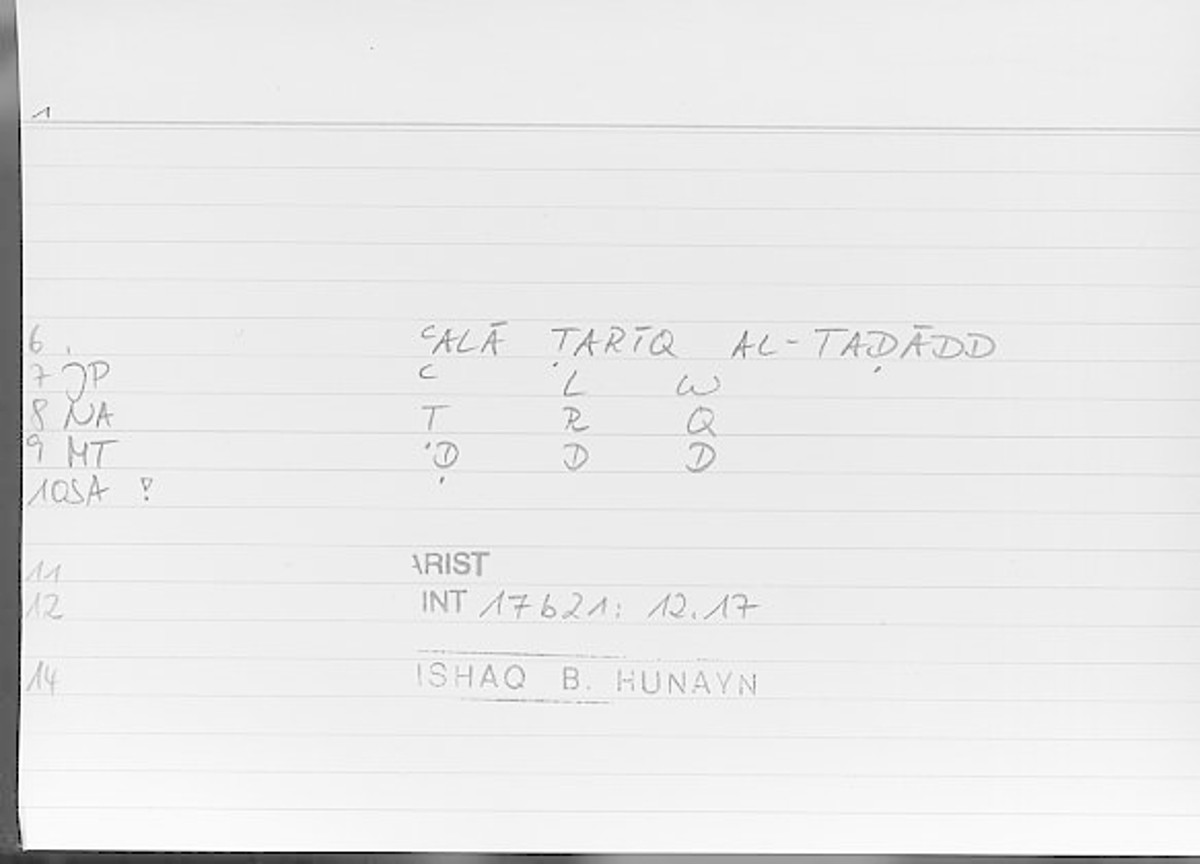 1
6. ʿALĀ ṬARĪQ AL-TAḌĀDD
7 JP ʿ L W
8 NA Ṭ R Q
9 MT Ḍ D D
10 SA
11 ARIST
12 INT 17b21: 12.17
14 ISHAQ B. HUNAYN